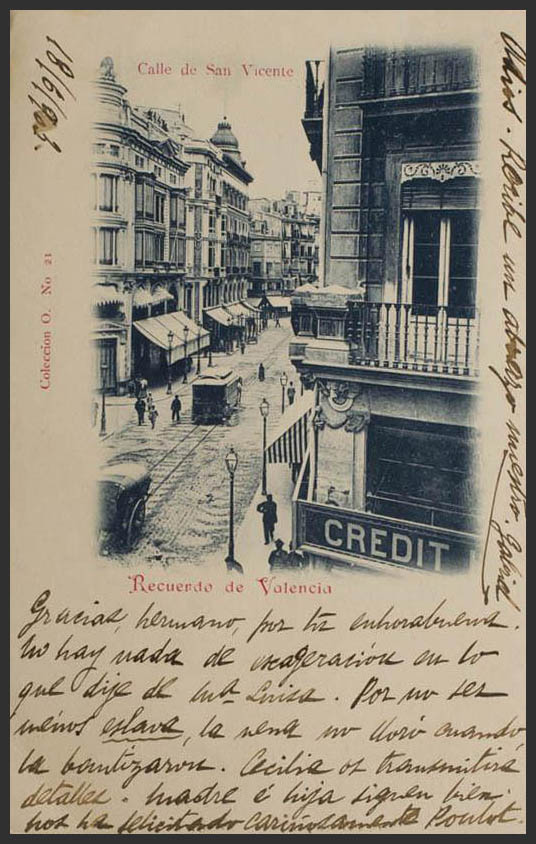 18/6/902.
Calle de San Vicente
Coleccion O. No 21
CREDIT
Recuerdo de Valencia
Gracias, hermano, por tu enhorabuena.
No hay nada de exageración en lo
que dije de Mª Luisa. Por no ser
menos eslava, la nena no lloró cuando
la bautizaron. Cecilia os transmitirá
detalles. Madre é hija siguen bien.
Nos ha felicitado cariñosamente
Adios. Recibe un abrazo nuestro. Gabriel